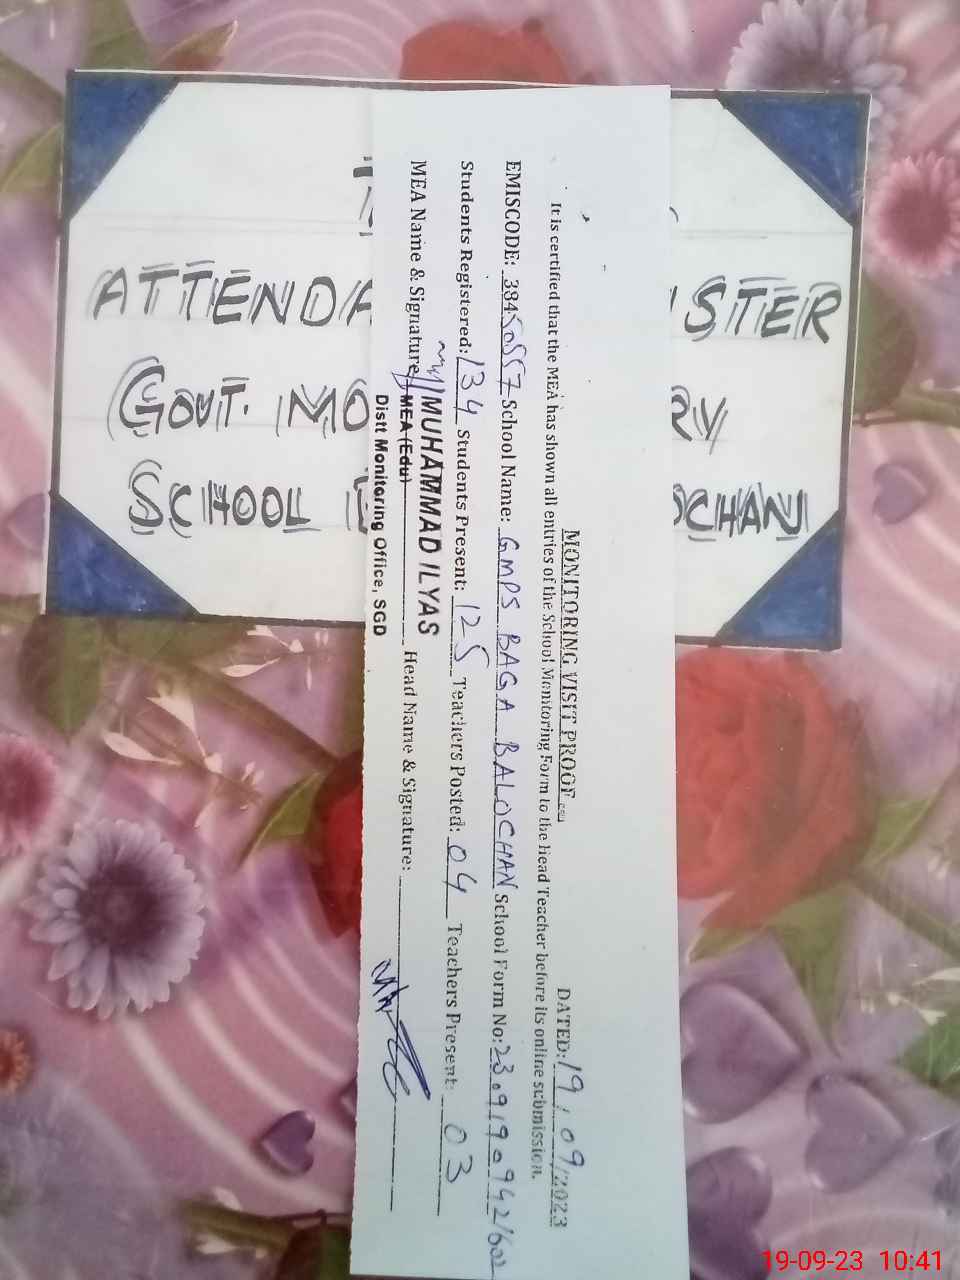 ATTENDA
STER
GOVT. MO
RY
SCHOOL
OCHAN
MONITORING VISIT PROOF DATED: 19/09/2023
It is certified that the MEA has shown all entries of the School Monitoring Form to the Head Teacher before its online submission.
EMISCODE: 38450557 School Name: GMPS BAGA BALOCHAN School Form No:
Students Registered: 134 Students Present: 125 Teachers Posted: 04 Teachers Present: 03
MEA Name & Signature Head Name & Signature:
MUHAMMAD ILYAS
MEA (Edu)
Distt Monitoring Office, SGD
19-09-23 10:41